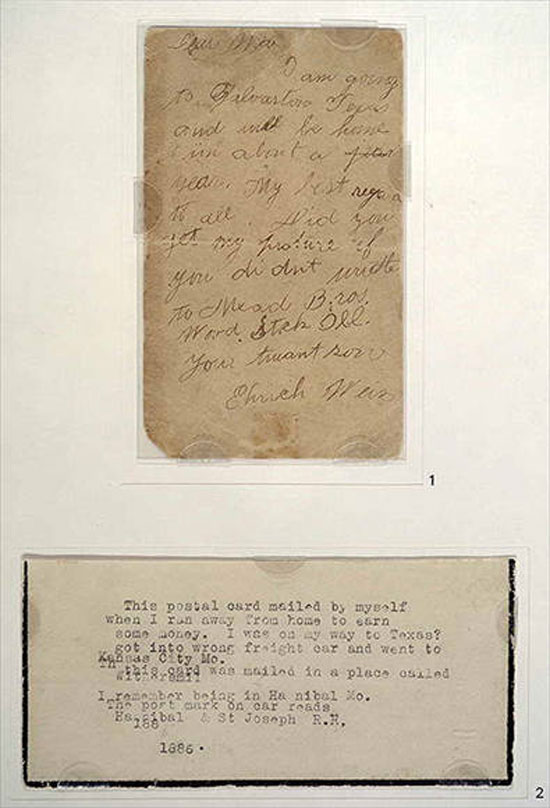 Dear Ma
I am going
to Galvaston Texas
and will be home
in about a
year. My best regards
to all. Did you
get my picture if
you didnt write
to Mead Bros.
Wood Stck Ill.
Your truant son
Ehrich Weiss
1
This postal card mailed by myself
when I run away from home to earn
some money. I was on my way to Texas?
got into wrong freight car and went to
Kansas City Mo.
this card was mailed in a place called
I remember being in Hannibal Mo.
The post mark on car reads
Hannibal & St Joseph R.R.
188
1886.
2